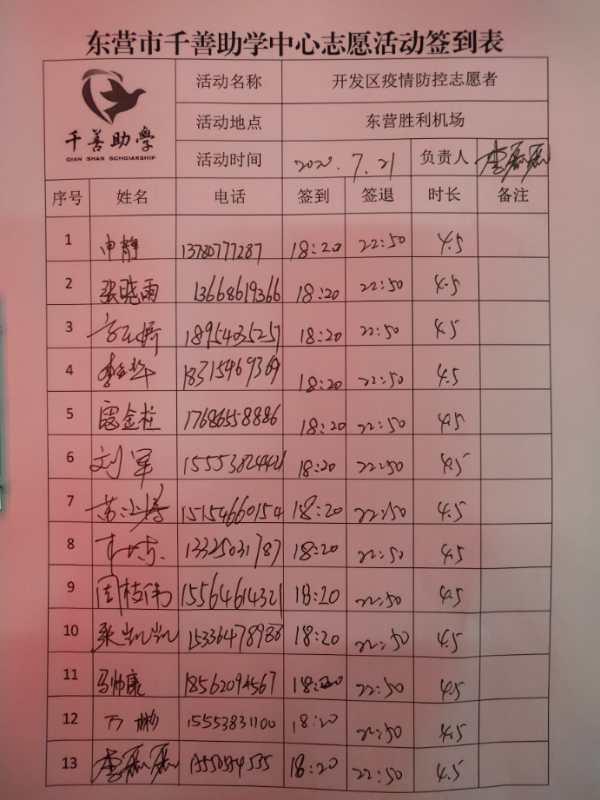 东营市千善助学中心志愿活动签到表
千善助学
QIAN SHAN SCHOLARSHIP
活动名称 开发区疫情防控志愿者
活动地点 东营胜利机场
活动时间 2020.7.21 负责人 李磊磊
序号 姓名 电话 签到 签退 时长 备注
1 申静 13780777287 18:20 22:50 4.5
2 张晓雨 13668619366 18:20 22:50 4.5
3 18954025257 18:20 22:50 4.5
4 18315469369 18:20 22:50 4.5
5 寇金柱 17686558886 18:20 22:50 4.5
6 刘军 18:20 22:50 4.5
7 15154660154 18:20 22:50 4.5
8 13325031787 18:20 22:50 4.5
9 周桂伟 15564614321 18:20 22:50 4.5
10 张凯凯 18:20 22:50 4.5
11 马帅康 18562094567 18:20 22:50 4.5
12 万彬 15553831100 18:20 22:50 4.5
13 李磊磊 18:20 22:50 4.5